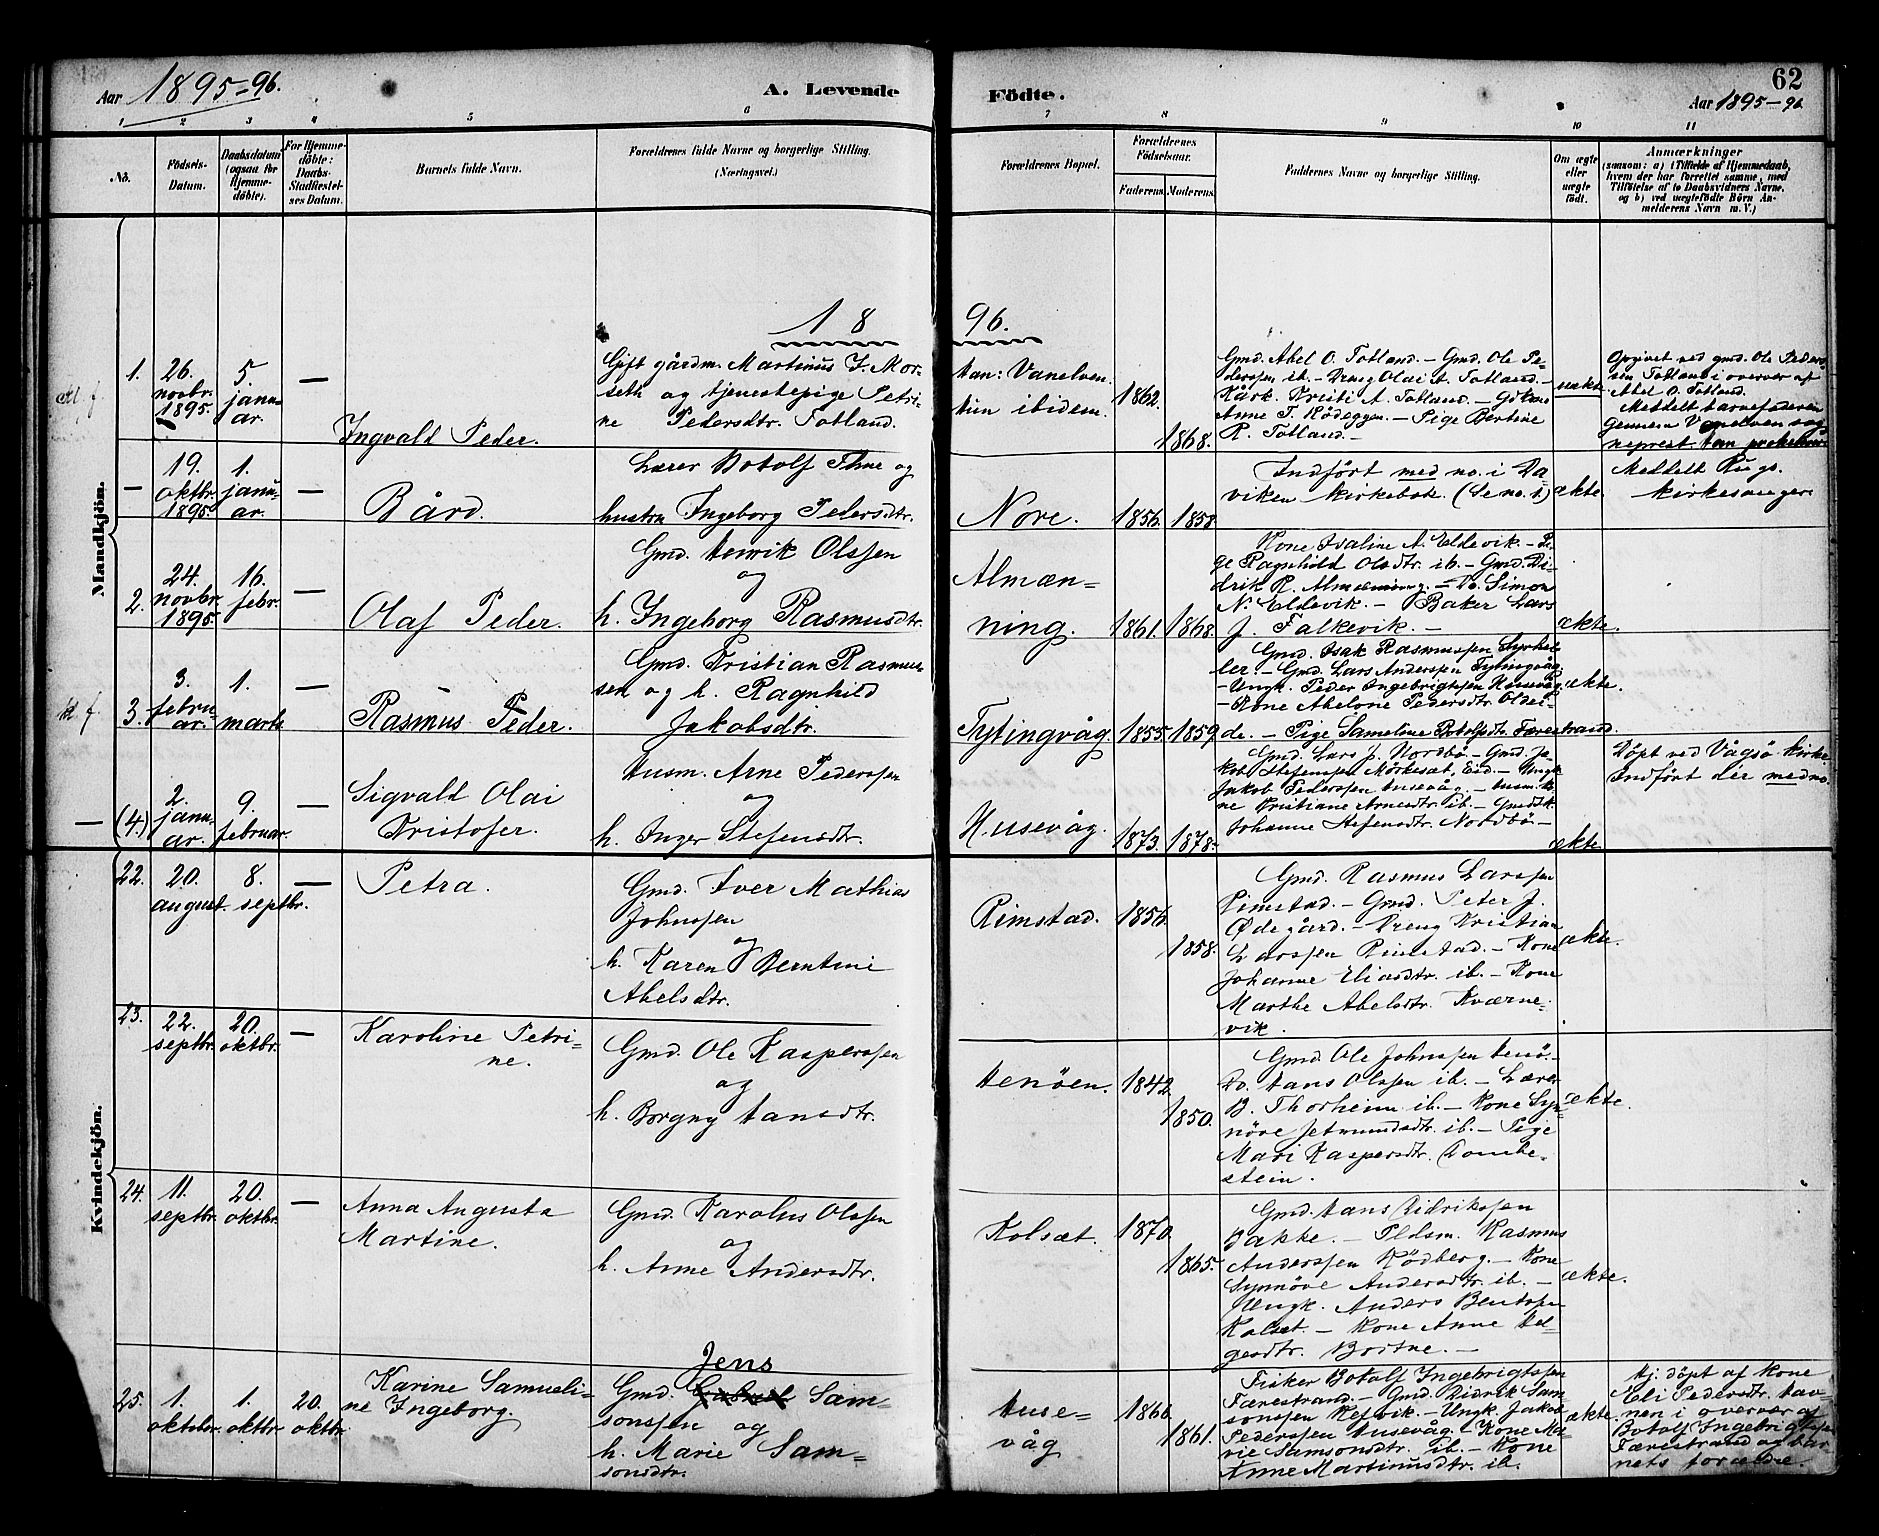 62
Aar 1895-96.
A. Levende
Födte.
Aar 1895-96
1 2 3 4 5 6 7 8 9 10 11
No.
Födsels-
Datum.
Daabsdatum
(ogsaa for
Hjemme-
döbte).
For Hjemme-
döbte:
Daabs-
Stadfæstel-
ses Datum.
Barnets fulde Navn.
Forældrenes fulde Navne og borgerlige Stilling.
(Næringsvei.)
Forældrenes Bopæl.
Forældrenes
Födselsaar.
Faderens. Moderens.
Faddernes Navne og borgerlige Stilling.
Om ægte
eller
uægte
födt.
Anmærkninger
(saasom: a) i Tilfælde af Hjemmedaab,
hvem der har forrettet samme, med
Tilföielse af to Daabsvidners Navne,
og b) ved uægtefödte Börn An-
melderens Navn m. V.)
Mandkjön.
18
96.
1.
26.
novbr.
1895.
5.
janu-
ar.
—
Ingvald Peder.
Gift gårdm. Martinus J. Mor-
seth og tjenestepige Petri-
ne Pedersdtr. Totland.
Han: Vanelven.
Hun ibidem.
1862.
1868.
Gmd. Abel O. Totland. - Gmd. Ole Pe-
derssen ib. - Dreng Olai A. Totland. -
Kårk. Kristi A. Totland. -
Anne T. Rödeggen. - Pige Bertine
R. Totland. -
uækte.
Opgivet ved gmd. Ole Peders-
sen Totland i overvær af
Abel O. Totland.
Meddelt barnefaderen
gennem Vanelven sog-
neprest.
—
19.
oktbr.
1895.
1.
janu-
ar.
—
Bård.
Lærer Botolf Thue og
hustru Ingeborg Pedersdtr.
Nore.
1856.
1858
Indført med no. i Da-
viken kirkebok. (Se no. 1)
ækte.
Meddelt Rugs.
kirkesanger
2.
24.
novbr.
1895.
16.
febr.
—
Olaf Peder.
Gmd. Henrik Olssen
og
h. Ingeborg Rasmusdtr.
Almæn-
ning.
1861.
1868.
Kone Isaline A. Eldevik. - Pi-
ge Ragnhild Olsdtr. ib. - Gmd. Di-
drik R. Almenning. - Do. Simon
N. Eldevik. - Baker Lars
J. Falkevik. -
ækte.
3.
3.
febru-
ar.
1.
marts
—
Rasmus Peder.
Gmd. Kristian Rasmus-
sen og h. Ragnhild
Jakobsdtr.
Tytingvåg.
1855.
1859.
Gmd. Isak Rasmussen
- Gmd. Lars Anderssen Tytingvåg.
- Ungk. Peder Ingebrigtsen Husevåg.
- Kone Abelone Pedersdtr. Oldei-
de. - Pige Sameline Botolfsdtr. Færestrand.
ækte.
(4.)
2.
janu-
ar.
9.
februar.
—
Sigvald Olai
Kristofer.
Husm. Arne Pederssen
og
h. Inger Stefensdtr.
Husevåg.
1873.
1878.
Gmd. Lars J. Nordbö. - Gmd. Ja-
kob Stefenssen Mörkesæt, Eid. - Ungk.
Jakob Pederssen Husevåg. - Husm. ko-
ne Kristiane Arnesdtr. ib. -
Johanne Stefensdtr. Nordbö. -
ækte.
Döpt ved Vågsö kirke.
Indført der med no.
Kvindekjön.
22.
20.
august.
8.
septbr.
—
Petra.
Gmd. Iver Mathias
Johnssen
og
h. Karen Berntine
Abelsdtr.
Rimstad.
1856.
1858.
Gmd. Rasmus Larssen
Rimstad. - Gmd. Peter J.
Ødegård. - Dreng Kristian
Larssen Rimstad. - Kone
Johanne Eliasdtr. ib. - Kone
Marthe Abelsdtr. Kværne-
vik.
ækte.
23.
22.
septbr.
20.
oktbr.
—
Karoline Petri-
ne.
Gmd. Ole Kasperssen
og
h. Borgny Hansdtr.
Henöen.
1842.
1850.
Gmd. Ole Johnssen Henö. -
Do. Hans Olssen ib. - Lærer
B. Thorheim ib. - Kone Syn-
növe Jetmundsdtr. ib. - Pige
Mari Kaspersdtr. Dombe-
stein.
ækte.
24.
11.
septbr.
20.
oktbr.
—
Anna Augusta
Martine.
Gmd. Karolus Olssen
og
h. Anne Andersdtr.
Kolsæt.
1870.
1865.
Gmd. Hans Didrikssen
Bakke. - Pldsm. Rasmus
Anderssen Rödberg. - Kone
Synnöve Andersdtr. ib. -
Ungk. Anders Bentssen
Kolsæt. - Kone Anne Hel-
gesdtr. Bortne. -
ækte.
25.
1.
oktober.
1.
oktbr.
20.
oktbr.
Karine Samueli-
ne Ingeborg.
Jens
Gmd. Sam-
sonssen og
h. Marie Sam-
sonsdtr.
Huse-
våg
1866
1861.
Fisker Botolf Ingebrigtssen
Færestrand. - Gmd. Didrik Sam-
sonssen Refvik. - Ungk. Jakob
Pederssen Husevåg. - Kone Ma-
rie Samsonsdtr. ib. - Kone
Anne Martinusdtr. ib.
ækte.
Hj. döpt af kone
Eli Pedersdtr. Hav-
nen i overvær af
Botolf Ingebrigtssen
Færestrand og bar-
nets forældre.